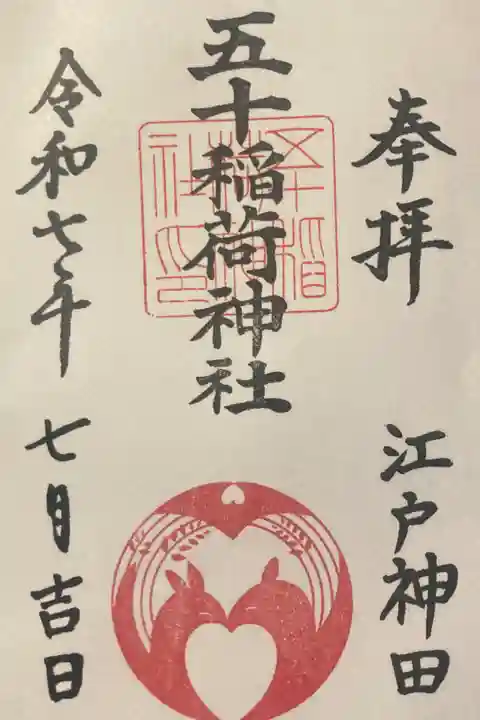 奉拝
江戸神田
五十稲荷神社
令和七年
七月吉日